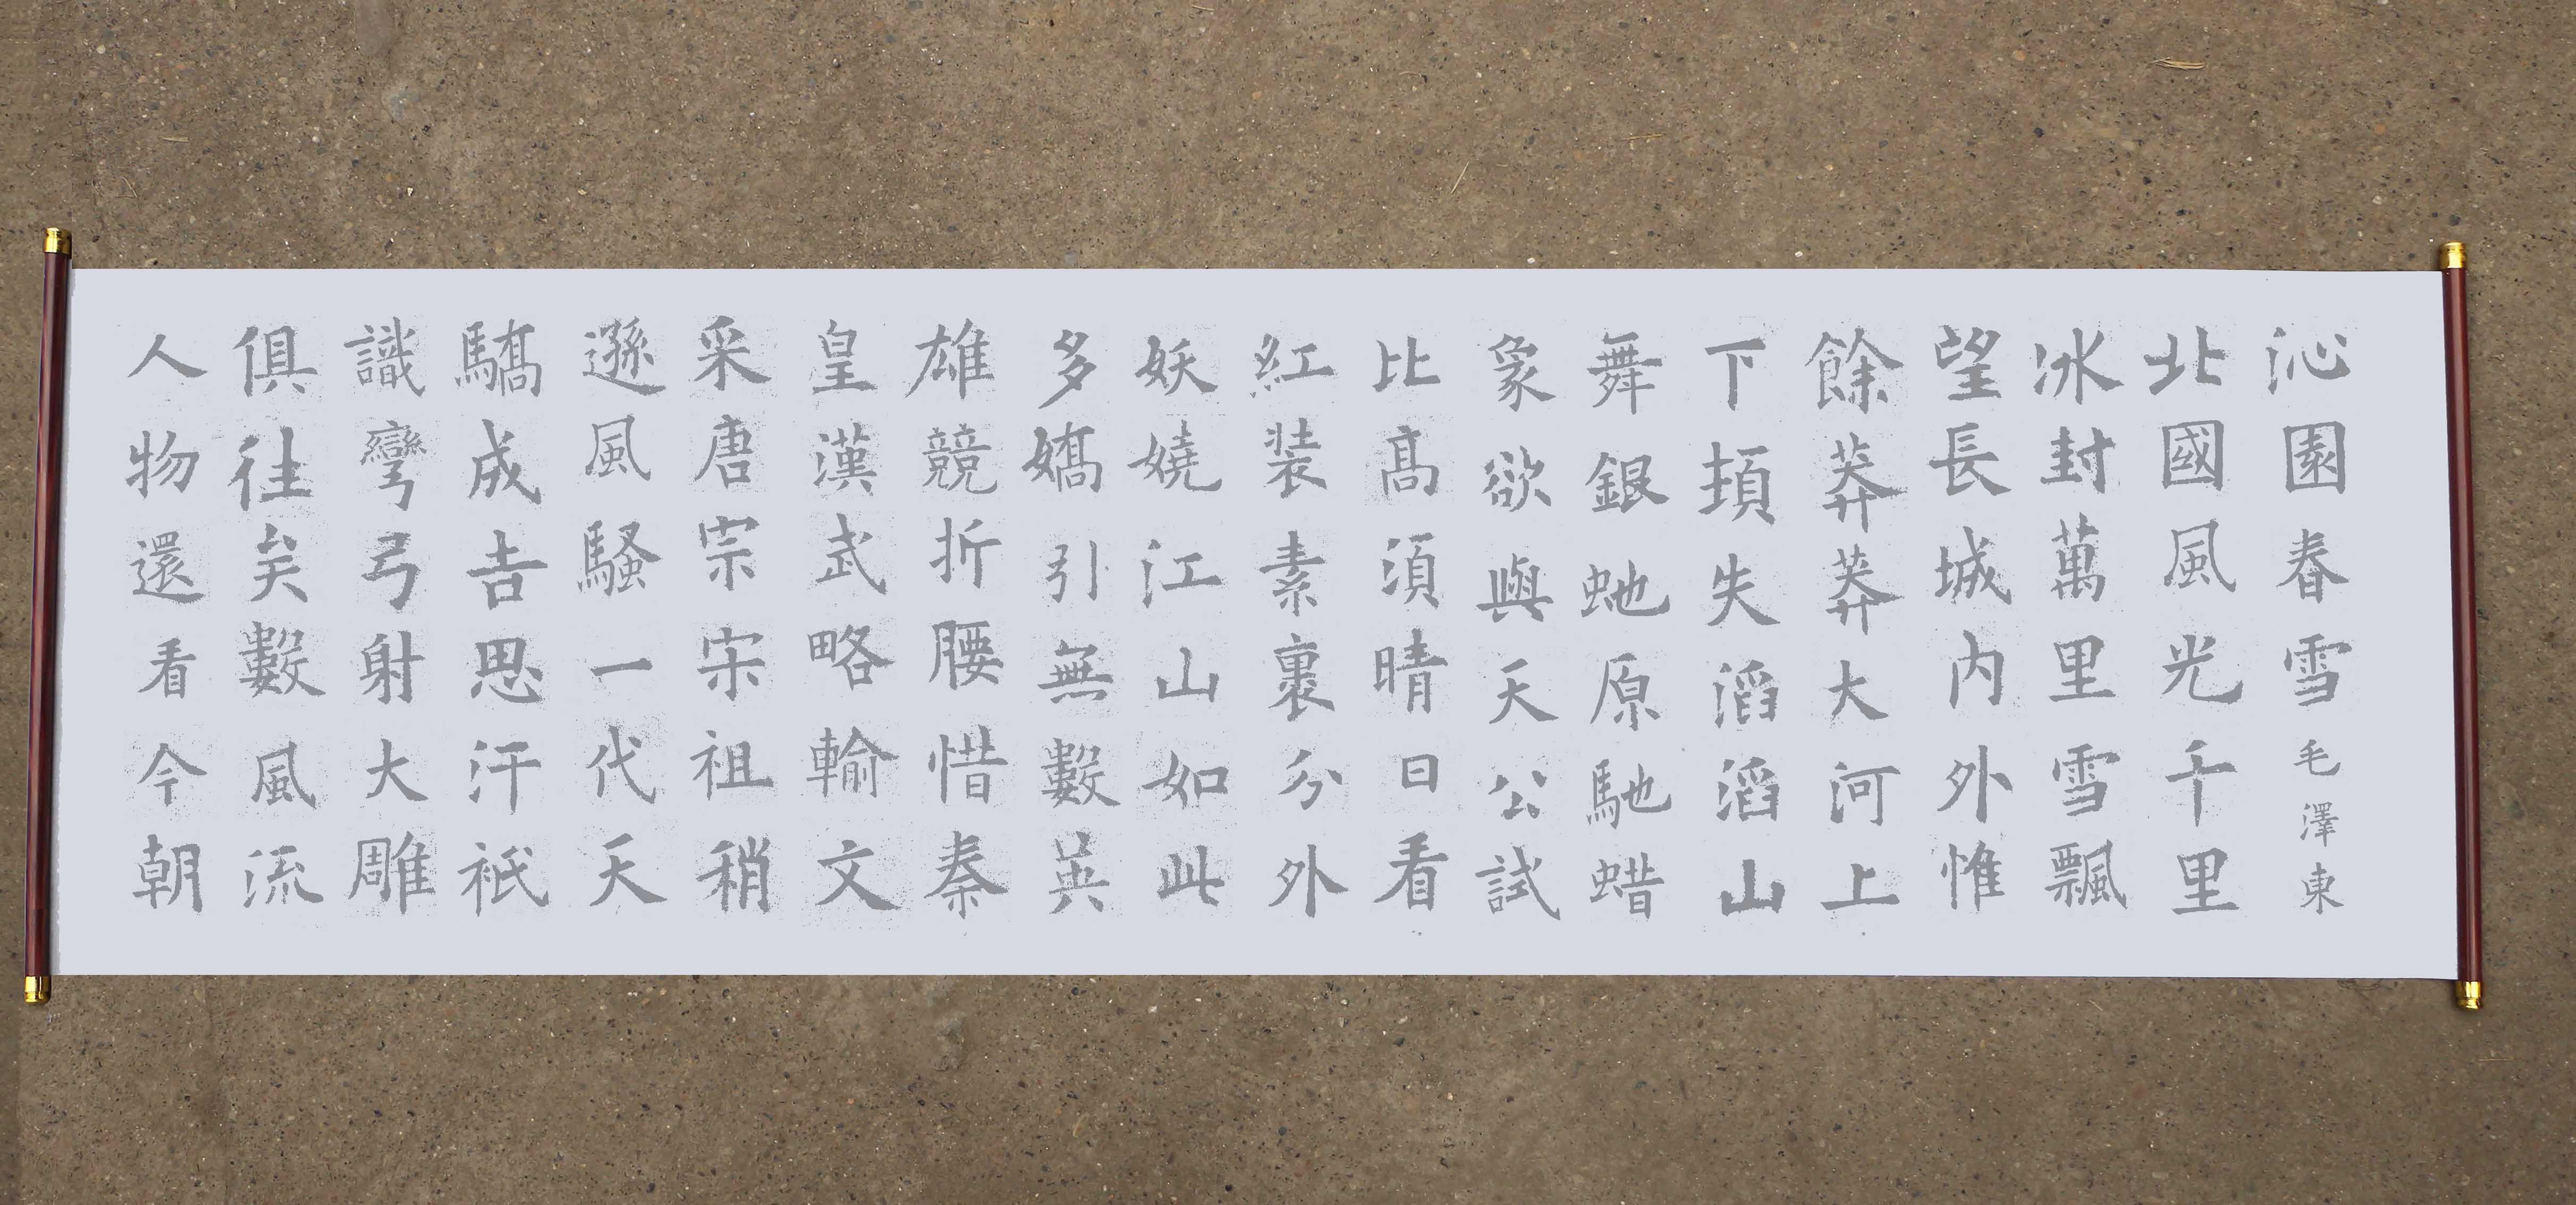 沁園春雪毛澤東
北國風光千里
冰封萬里雪飄
望長城内外惟
餘莽莽大河上
下頓失滔滔山
舞銀虵原馳蜡
象欲與天公試
比高須晴日看
紅装素裹分外
妖嬈江山如此
多嬌引無數英
雄競折腰惜秦
皇漢武略輸文
采唐宗宋祖稍
遜風騷一代天
驕成吉思汗衹
識彎弓射大雕
俱往矣數風流
人物還看今朝